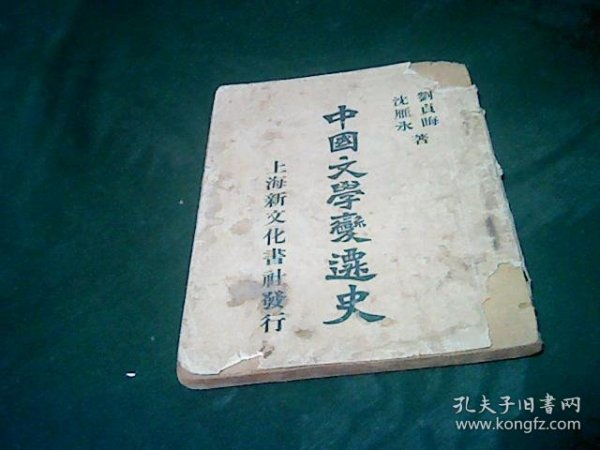 劉貞晦
沈雁冰
著
中國文學變遷史
上海新文化書社發行
孔夫子旧书网
www.kongfz.com